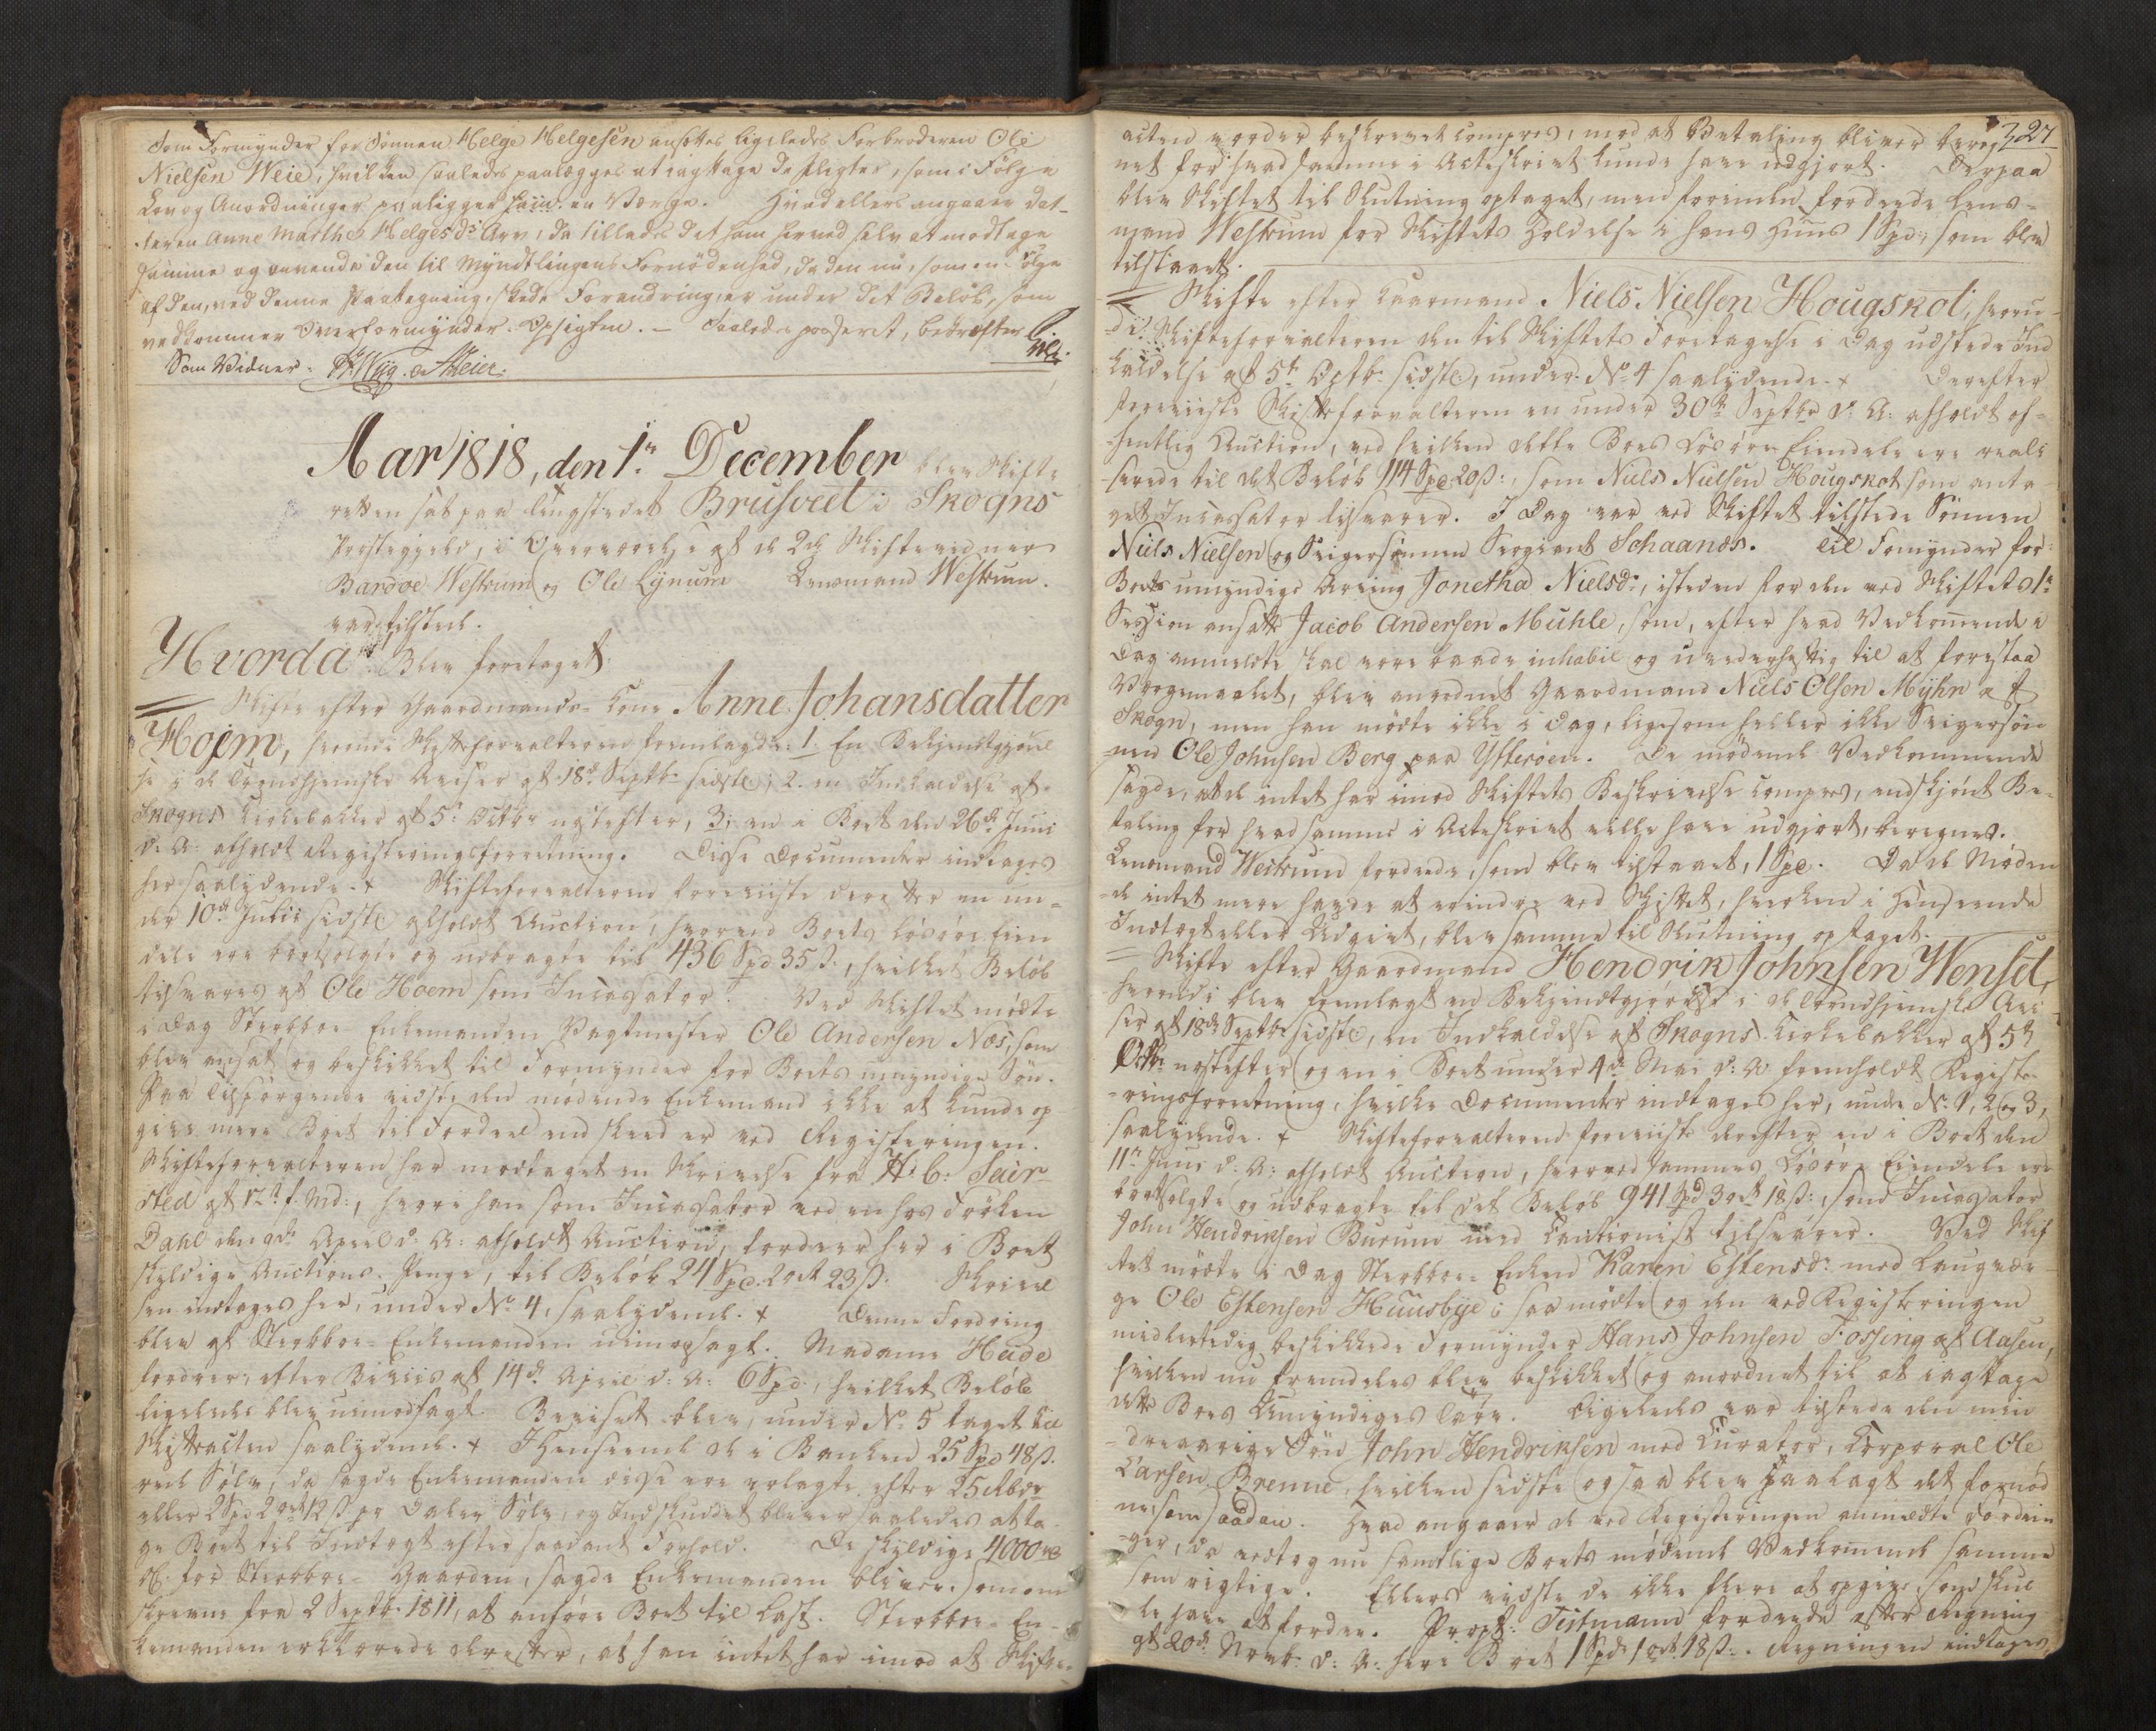 Som Formynder for Sønnen Helge Helgesen ansattes ligeledes Farbroderen Ole
Nielsen Weie, hvilken saaledes paalægges at iagttage de Pligter, som i Følge
Lov og Anordninger paaligger ham en Værge. Hvad ellers angaaer Dat-
teren Anne Marthe Helgesdr Arv, da tillades det ham herved selv at modtage
samme og anvende den til Myndtlingens Fornødenhed, da den nu, som en Følge
af den, ved denne Paategning, skede Forandring, er under det Beløb, som
vedkommer Overformynder-Opsigten. - Saaledes passeret, bekræftes
Som Vidner.
Aar 1818, den 1te December blev Skifte
retten sat paa Tingstedet Brusveet i Skogns
Præstegjeld, i Overværelse af de 2de Skiftevidner
Bardoe Westrum og Ole Lynum Lensmand Westrum
var tilstede.
Hvorda Blev foretaget
Skifte efter Gaardmands-Kone Anne Johansdatter
Hojem, hvorudi Skifteforvalteren fremlagde: 1. En Bekjendtgjørel
se i de Trondhjemske Aviser af 18de Septbr sidstl; 2. en Indkaldelse af
Skogns Kirkebakke af 5te Octbr næstefter, 3; en i Boet den 26de Juni
d: A: afholdt Registeringsforretning. Disse Documenter indtages
her saalydende. + Skifteforvalteren foreviiste derefter en un-
der 10de Julii sidstl afholdt Auction, hvorved Boets Løsøre Eien
dele ere bortsolgte og udbragte til 436 Spd 35 s., hvilket Beløb
tilsvares af Ole Hoem som Incassator. Ved Skiftet mødte
i Dag Sterbboe-Enkemanden Vagtmester Ole Andersen Næs, som
blev ansat og beskikket til Formynder for Boets umyndige Søn.
Paa Tilspørgende vidste den mødende Enkemand ikke at kunde op
give mere Boet til Fordeel end skeed er ved Registeringen.
Skifteforvalteren har modtaget en Skrivelse fra H: C: Sair-
sted af 12te f. Md:, hvori han som Incassator ved en hos Frøken
Dahl den 9de April d: A: afholdt Auction, fordrer her i Boet
skyldige Auctions-Penge, til Beløb 24 Spd. 2 ort 23 s. Skrivel
sen indtages her, under No 4, saalydende. + Denne Fordring
blev af Sterbboe-Enkemanden uimodsagt. Madame Heide
fordrer, efter Beviis af 14de April d: A: 6 Spd., hvilket Beløb
ligeledes blev uimodsagt. Beviset blev, under No 5 taget til
Skifteacten saalydende. + I Henseende de i Banken 25 Spd 48 s.
rede Sølv, da sagde Enkemanden disse ere erlagte efter
eller 2 Spd 2 ort 12 s pr Daler Sølv, og Indskuddet bliver saaledes at ta
ge Boet til Indtægt efter saadant Forhold. De skyldige 4000
for Sterbboe-Gaarden, sagde Enkemanden bliver, som om
skrevne fra 2 Septbr. 1811, at anføre Boet til Last. Sterbboe-En-
kemanden erklærede derefter, at han intet har imod at Skifte-
327
acten vorder beskrevet compres, mod at Betaling bliver bereg
net for hvad samme i Acteskrivt kunde have udgjort. Derpaa
blev Skiftet til Slutning optaget, men forinden fordrede Lens-
mand Westrum for Skiftets Holdelse i hans Huus 1 Spd., som blev
tilstaaet.
Skifte efter Gaarmand Niels Nielsen Hougskot, hvoru
di Skifteforvalteren den til Skiftets Foretagelse i Dag udstede Ind
kaldelse af 5te Octbr sidstl, under No 4 saalydende. + Derefter
foreviiste Skifteforvalteren en under 30te Septbr d: A: afholdt of-
fentlig Auction, ved hvilken dette Boes Løsøre Eiendele ere reali
serede til det Beløb 114 Spd 20 s:, som Niels Nielsen Hougskot som anta
get Incassator tilsvarer. I Dag var ved Skiftet tilstede Sønnen
Niels Nielsen og Svigersønnen Sergeant Schaanes. Til Formynder for
Boets umyndige Arving Jonetha Nielsdr, isteden for den ved Skiftets 1te
Session ansatte Jacob Andersen Muhle, som, efter hvad Vedkommende i
Dag anmeldte skal være baade inhabil og uvederheftig til at forestaa
Værgemaalet, blev anordnet Gaardmand Niels Olsen Myhr af
Skogn, men han mødte ikke i Dag, ligesom heller ikke Svigersøn
nen Ole Johnsen Berg paa Ytterøen. De mødende Vedkommende
sagde, at de intet har imod Skiftets Beskrivelse compres, endskjønt Be-
taling for hvad samme i Acteskrivt ville have udgjort, beregnes.
Lensmand Westrum fordrede, som blev tilstaaet, 1 Spd. Da de Møden
de intet mere havde at erindre ved Skiftet, hverken i Henseende
Indtægt eller Udgivt, blev samme til Slutning optaget.
Skifte efter Gaardmand Hendrik Johnsen Wenset,
hvorudi blev fremlagt en Bekjendtgjørelse i de Trondhjemske Avi
ser af 18de Septbr sidstl, en Indkaldelse af Skogns Kirkebakke af 5te
Octbr. næstefter og en i Boet under 4de Mai d: A: fremholdt Registe-
ringsforretning, hvilke Documenter indtages her, under No. 1, 2 og 3,
saalydende. + Skifteforvalteren foreviiste derefter en i Boet den
11te Juni d: A: afholdt Auction, hvorved sammes Løsøre Eiendele ere
bortsolgte og udbragte til det Beløb 941 Spd 3 ort 18 s:, som Incassator
John Hendriksen Burum med Cautionist tilsvarer. Ved Skif
tet mødte i Dag Sterbboe-Enken Karen Estensdr. med Laugvær
ge Ole Estensen Huusbye; saa mødte og den ved Registeringen
midlertidig beskikkede Formynder Hans Johnsen Fossing af Aasen,
hvilken nu fremdeles blev beskikket og anordnet til at iagttage
dette Boes Umyndiges Tarv. Ligeledes var tilstede den min
dreaarige Søn John Hendriksen med Curator, Corporal Ole
Larsen Brenne, hvilken sidste ogsaa blev paalagt det fornød
ne som saadan. Hvad angaaer de ved Registeringen anmeldte Fordrin
ger, da vedtog nu samtlige Boets mødende Vedkommende samme
som rigtige. Ellers vidste de ikke flere at opgive, som skul
le have at fordre. Propt: Tistmann fordrede efter Regning
af 20de Novbr. d: A: hos Boet 1 Spd 1 ort 18 s:. Regningen indtages